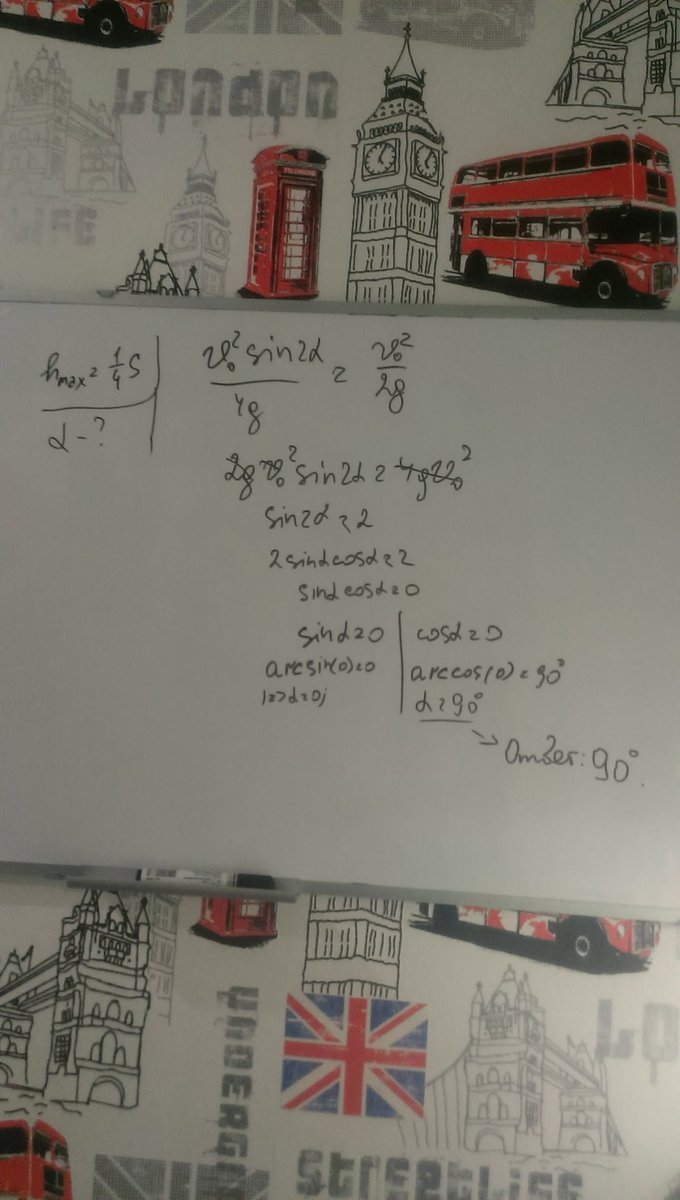 LONDON
LIFE
TELEPHONE
hmax = 1/4 S
α - ?
v₀² sin2α / 4g = v₀² / 2g
2g v₀² sin2α = 4g v₀²
sin2α = 2
2sinαcosα = 2
sinαcosα = 0
sinα = 0 | cosα = 0
arcsin(0) = 0 | arccos(0) = 90°
=> α = 0; | α = 90°
→ Ответ: 90°.
UNDERG
LO
STREETLIFE